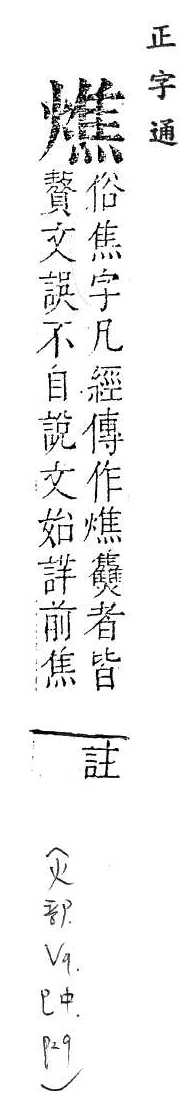 正字通
燋
俗焦字凡經傳作燋𤓪者皆
贅文誤不自說文始詳前焦
註
(火部. V9. 巳中. P29)